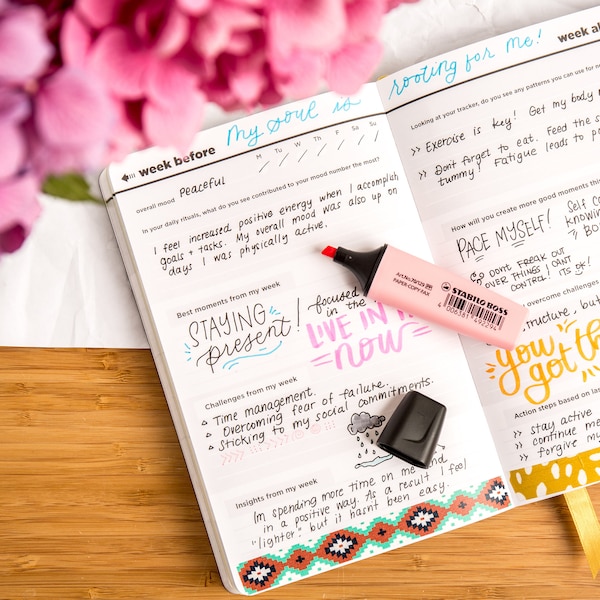 My soul is
week before
M T W T F S Su
overall mood Peaceful
In your daily rituals, what do you see contributed to your mood number the most?
I feel increased positive energy when I accomplish
goals + tasks. My overall mood was also up on
days I was physically active.
Best moments from my week
STAYING present!
focused
in the
LIVE IN
now
Challenges from my week
Time management.
Overcoming fear of failure.
Sticking to my social commitments.
Insights from my week
Im spending more time on me and
in a positive way. As a result I feel
"lighter" but it hasn't been easy.
rooting for me!
week
Looking at your tracker, do you see any patterns you can use for
>> Exercise is key! Get my body
>> Dont forget to eat. Feed the
tummy! Fatigue leads to
How will you create more good moments
PACE MYSELF!
Self
knowing
DONT FREAK OUT
OVER THINGS I CANT
CONTROL! ITS ok!
overcome challenges
structure, but
you
got
Action steps based on
>> stay active
>> continue
>> forgive
Art.-No.
PAPER-COPY-FAX
STABILO BOSS